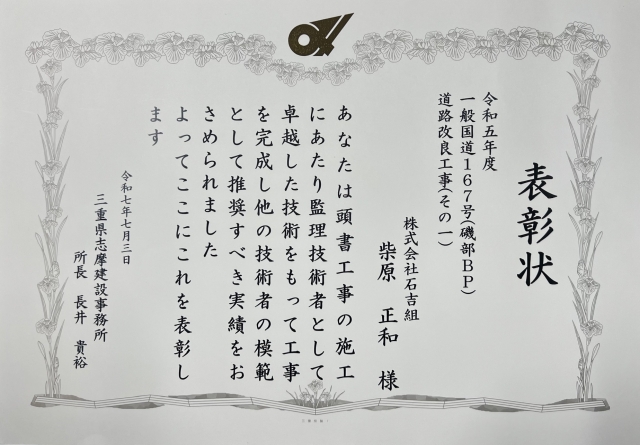 表彰状
令和五年度
一般国道167号(磯部BP)
道路改良工事(その一)
株式会社石吉組
柴原 正和 様
あなたは頭書工事の施工
にあたり監理技術者として
卓越した技術をもって工事
を完成し他の技術者の模範
として推奨すべき実績をお
さめられました
よってここにこれを表彰し
ます
令和七年七月三日
三重県志摩建設事務所
所長 長井 貴裕